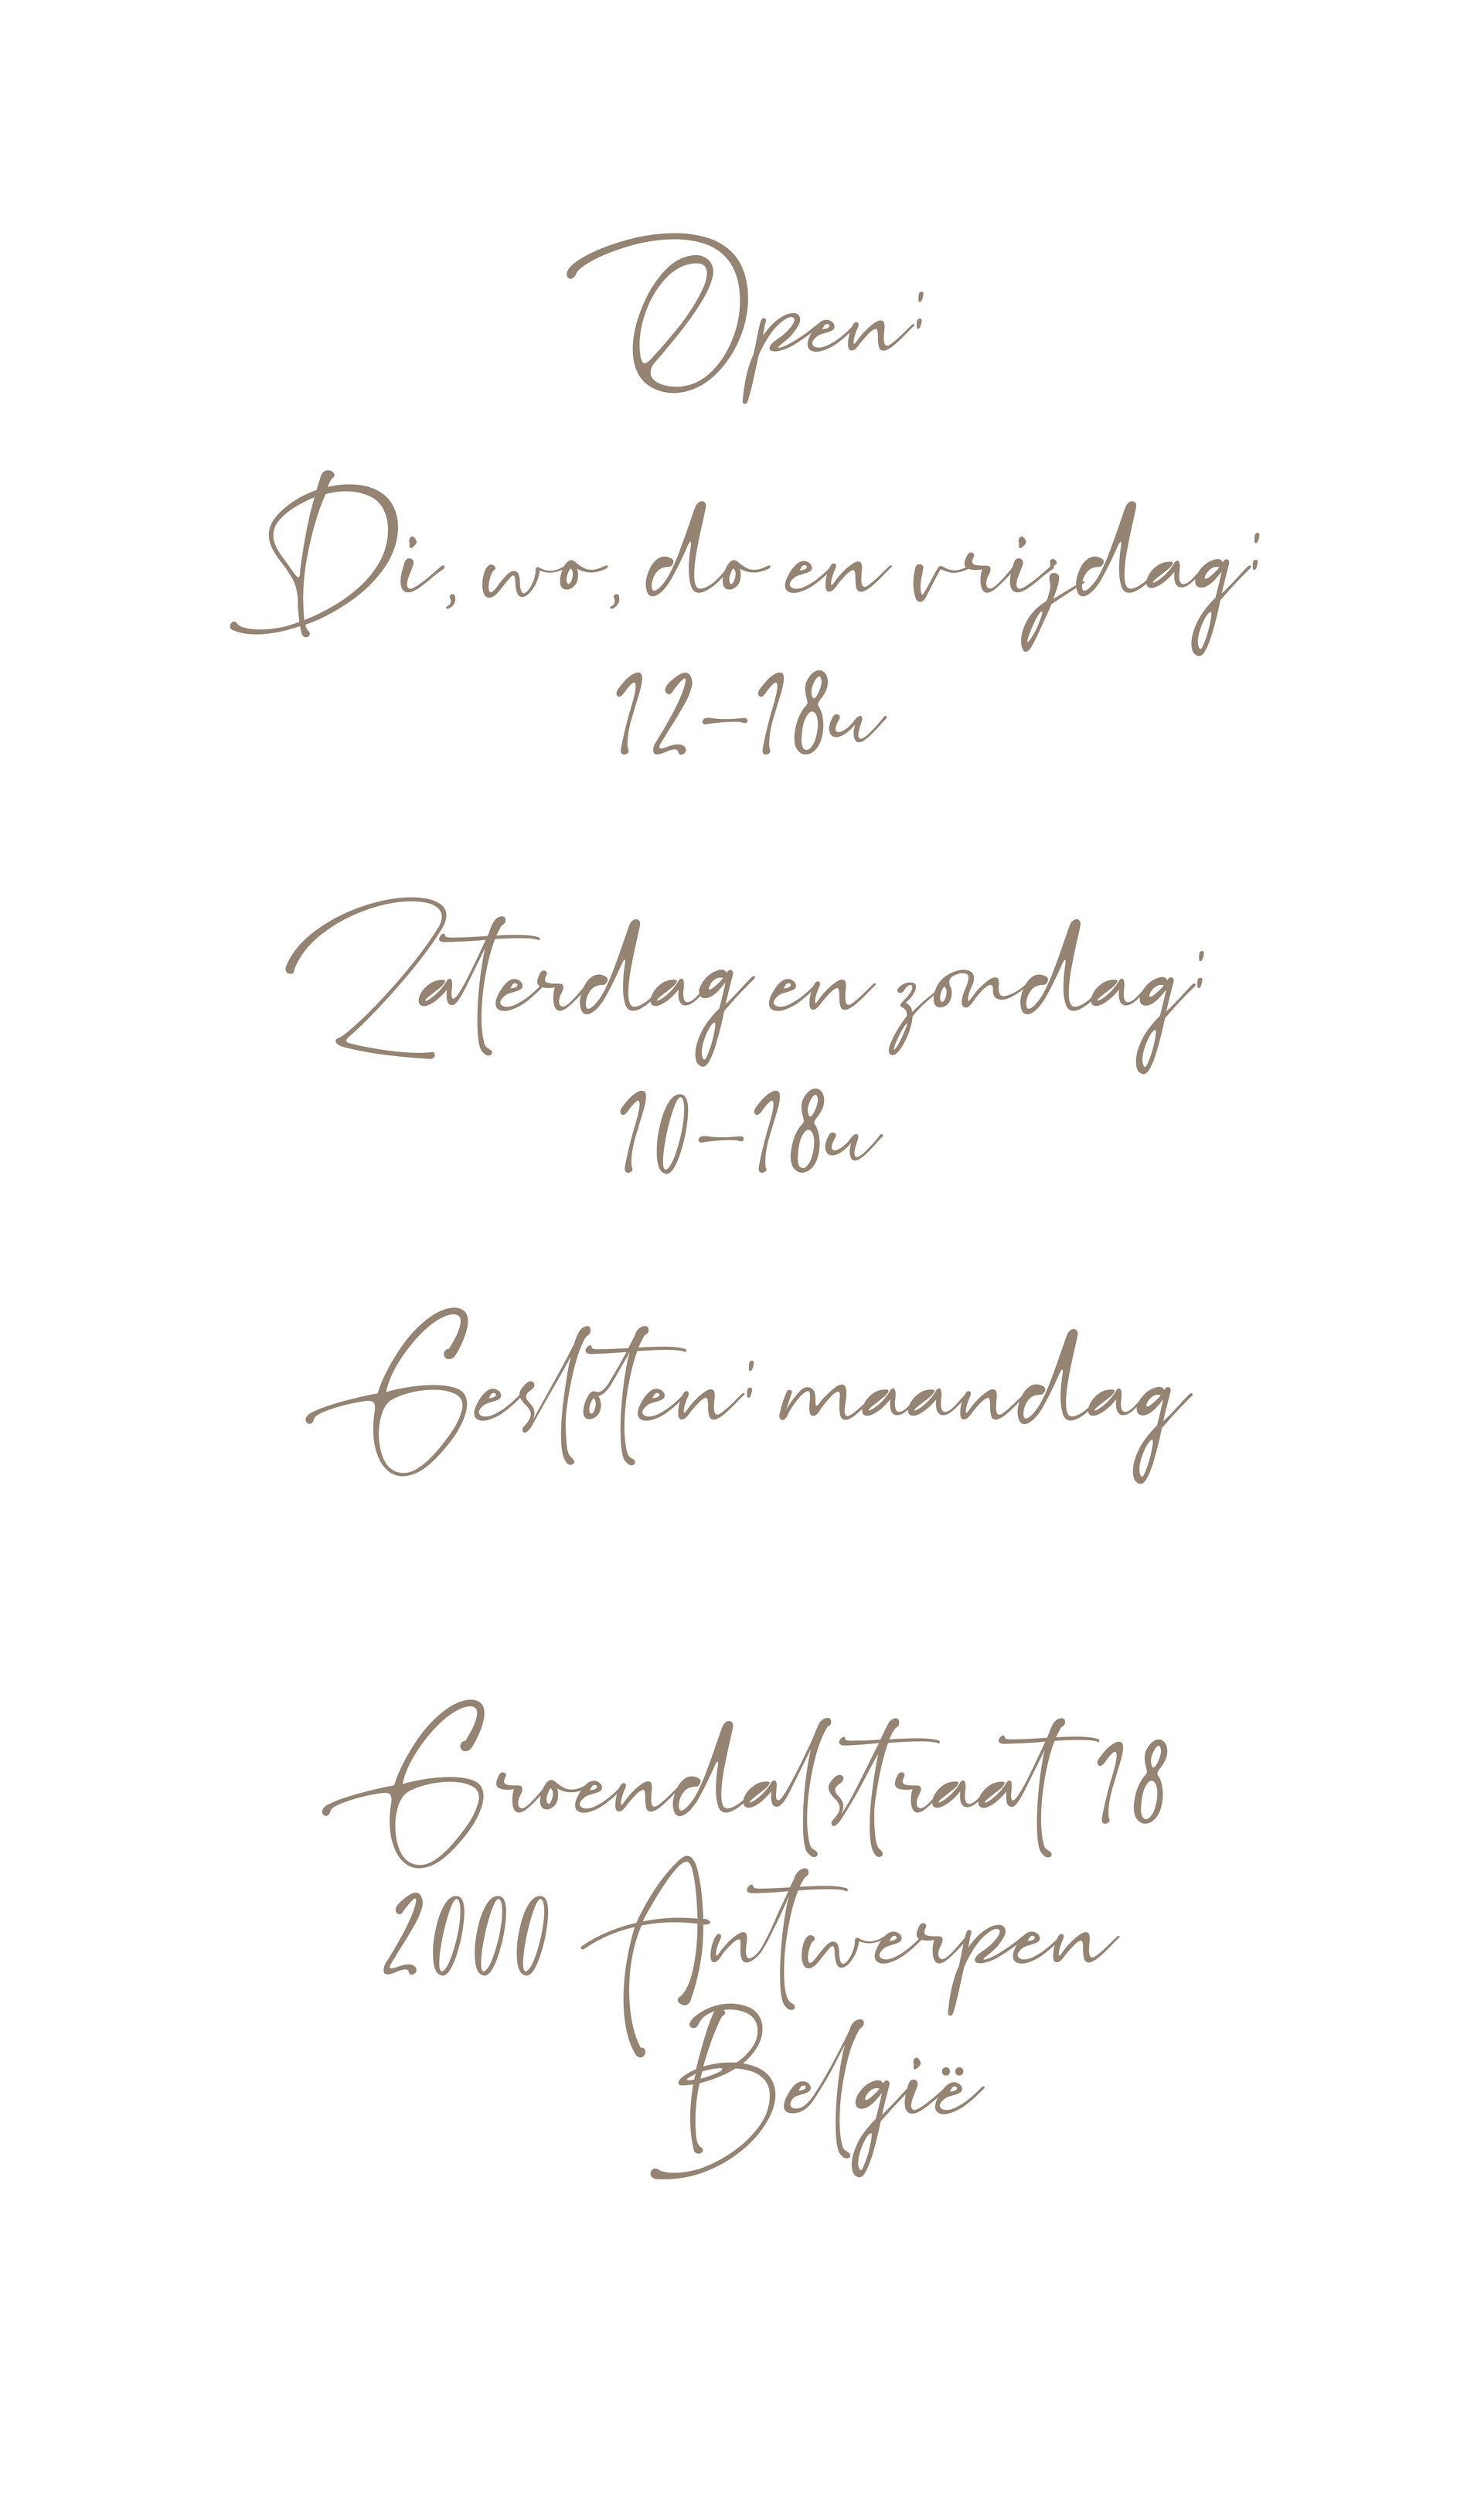 Open:
Di, wo, do en vrijdag:
12-18u
Zaterdag en zondag:
10-18u
Gesloten: maandag
Groendalstraat 18
2000 Antwerpen
België